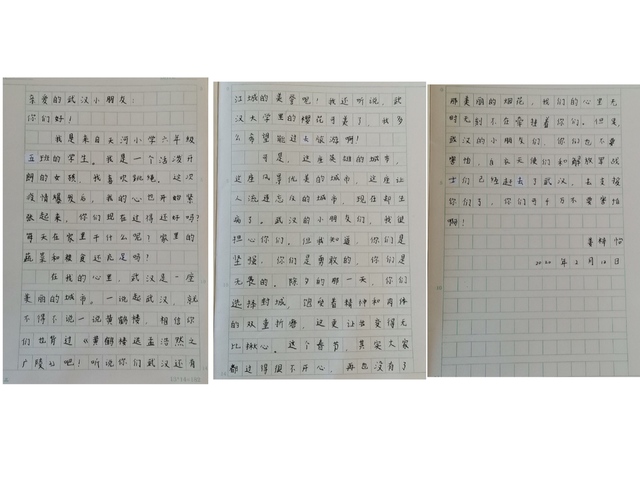 亲爱的武汉小朋友：
你们好！
我是来自天河小学六年级
五班的学生。我是一个活泼开
朗的女孩，我喜欢跳绳。这次
疫情爆发后，我的心也开始紧
张起来，你们现在过得还好吗？
每天在家里干什么呢？家里的
蔬菜和粮食还充足吗！
在我的心里，武汉是一座
美丽的城市。一说起武汉，就
不得不说一说黄鹤楼，相信你
们也背过《黄鹤楼送孟浩然之
广陵》吧！听说你们武汉还有
江城的美誉呢！我还听说，武
汉大学里的樱花可美了，我多
么希望能过去旅游啊！
可是，这座英雄的城市，
这座风景优美的城市，这座让
人流连忘返的城市，现在却生
病了。武汉的小朋友们，我很
担心你们。但我知道，你们是
坚强，你们是勇敢的，你们是
无畏的。除夕的那一天，你们
选择封城，饱受着精神和肉体
的双重折磨，这更让我变得无
比揪心。这个春节，其实大家
都过得很不开心，再也没有了
那美丽的烟花。我们的心里无
时无刻不在牵挂着你们。但是，
武汉的小朋友们，你们也不要
害怕，白衣天使们和解放军战
士们已经赶去了武汉，去支援
你们了，你们千万不要害怕
啊！
2020年2月18日